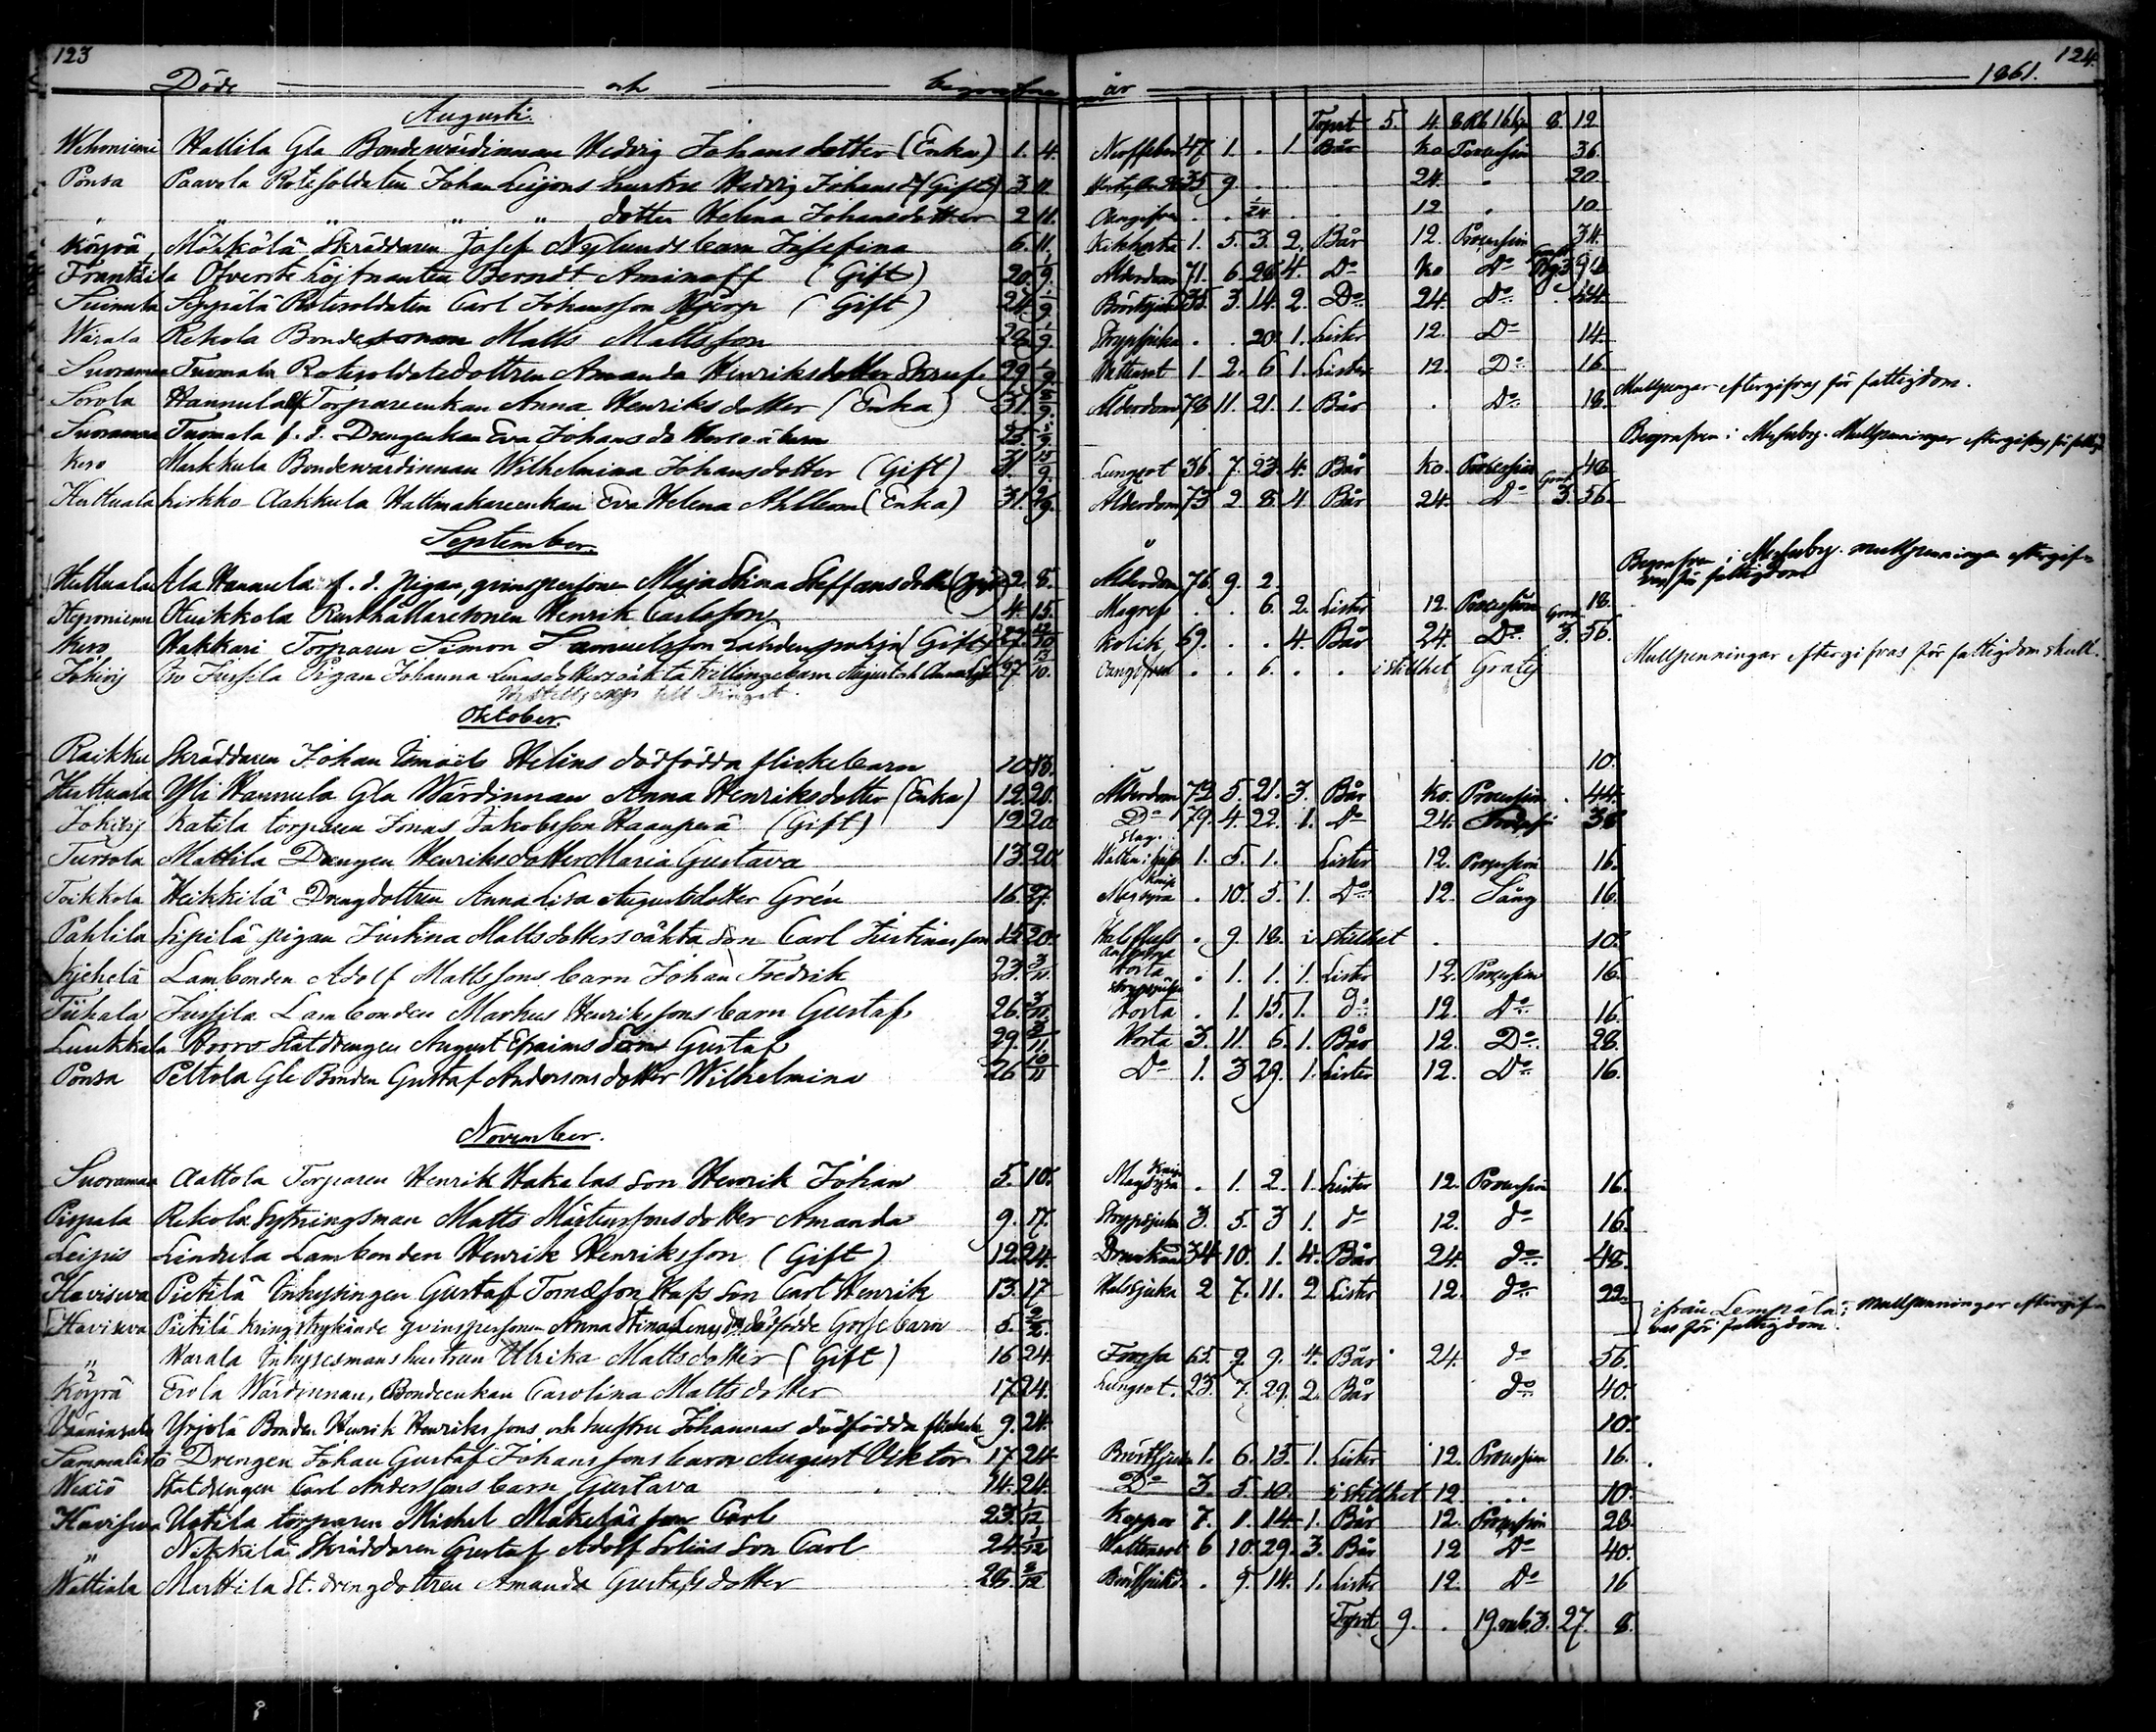 123
124.
Döde och begrafne år 1861.
Augusti.
Transpt 5. 4. 8 Rb 16 kp 8. 12
Wehoniemi Hallila Gla Bondewärdinnan Hedvig Johansdotter (Enka) 1. 4. 47 1. . 1. Bår ko Procession 36.
Ponsa Paavola Rotesoldaten Johan Leijons hustru Hedvig Johansd. (Gift) 3 11. 35 9 24. 20
" " " " " dotter Helena Johansdotter 2 11. Oangifven . . 1/24 12 10.
Köyrä Mökkölä Skräddaren Josef Neflunds barn Josefina 6. 11. Kikhosta 1. 5. 3. 2. Bår 12. Procession 34.
Frantsila Öfverste löjtnanten Berndt Aminoff (Gift) 20. 1/9. Ålderdom 71. 6. 26 4. Do ko Do
Suinula Seppälä Rotesoldaten Carl Johansson Skjerp (Gift) 24. 1/9. Bröstsjuk 35. 3. 14. 2. Do 24. Do 44.
Wärala Rekola Bondesonen Matts Mattsson 28. 1/9. Strypsjuka . . 20. 1. Lister 12. Do 14.
Suoramaa Tuomala Rotesoldatsdottren Amanda Henriksdotter Skruf 29 1/9. Wattusot 1. 2. 6 1. Lister 12. Do 16.
Sorola Hannula Torpareenkan Anna Henriksdotter (Enka) 31. 8/9. Ålderdom 78 11. 21. 1. Bår . Do 18. Mullpengar eftergifvas för fattigdom.
Suoramaa Tuomala f. d. Drengenkan Eva Johansdotters oä barn 25. Begrafven i Messuby. Mullpenningar eftergifvas för fattigd
Kero Markkula Bondewärdinnan Wilhelmina Johansdotter (Gift) 31. 15/9. Lungsot 36. 7. 23. 4. Bår ko. Procession 48.
Huttuala Kirkko-Aakkula Hattmakareenkan Eva Helena Ahlbom (Enka) 31. Ålderdom 73 2. 8. 4. Bår 24. Do 3. 56.
September.
Huttuala Ala Hannula f. d. Pigan, qvinspersonen Maja Stina Steffansdotter (Gift) 2. 8. Ålderdom 76. 9. 2. Begrafven i Messuby. mullpenningar eftergif-
vas för fattigdom
Heponiemi Kuikkola Rusthållaresonen Henrik Carlsson 4. 15. Magref . . 6. 2. Lister 12. Procession 18.
Kero Hakkari Torparen Simon Samuelsson Lahdenpohja (Gift) 27. 13/10 Kolik 69. . . 4. Bår 24. Do 3. 56.
Jokioij Iso Jussila Pigan Johanna Lenasdotters oäkta tvillingebarn August och Annalisa 27 13/10. Oangifven . . 6. . . i stillhet Gratis Mullpenningar eftergifvas för fattigdom skull.
till Tinget.
Oktober.
Raikku Skräddaren Johan Ismaels Helins dödfödda flickebarn 10. 13. 10.
Huttuala Yli Hannula Gla Wärdinnan Anna Henriksdotter (Enka) 12. 20. Ålderdom 72. 5. 21. 3. Bår ko. Procession 44.
Jokioij Katila torparen Jonas Jakobsson Haanperä (Gift) 12 20. Do 79. 4. 22. 1. Do 24. 38
Tursola Mattila Drengen Henriksdotter Maria Gustava 13. 20. 1. 5. 1. Lister 12. Procession 16.
Toikkola Heikkilä Drengdottren Anna Lisa Augustsdotter Grén 16. 27. . 10. 5. 1. Do 12. Sång 16.
Pahlila Sipilä pigan Justina Mattsdotters oäkta son Carl Justinasson 15. 20. Halsfluss . 9. 18. i stillhet . 10.
Kjehelä Lambonden Adolf Mattssons barn Johan Fredrik 23. 3/11. . 1. 1. 1. Lister 12. Procession 16.
Tiihala Jussila Lambonden Markus Henrikssons barn Gustaf 26. 3/11. Hosta . 1. 15. 1. do 12. Do 16.
Luukkala Horro Statdrengen August Efraims Son Gustaf 29. 3/11. Hosta 3. 11. 6. 1. Bår 12. Do 28.
Ponsa Peltola Gle Bonden Gustaf Anderssons dotter Wilhelmina 26 10/11 Do 1. 3 29. 1. Lister 12. Do 16.
November.
Suoramaa Aattola Torparen Henrik Hakalas Son Henrik Johan 5. 10. . 1. 2. 1. Lister 12. Procession 16.
Pispala Rekola Sytningsman Matts Mårtenssons dotter Amanda 9. 17. Strypsjuka 3. 5. 3 1. do 12. do 16.
Leipis Lindula Lambonden Henrik Henriksson (Gift) 12. 24. Drunknad 34 10. 1. 4. Bår 24. do 48.
Havisuva Pietilä Inhysingen Gustaf Tomasson Hass Son Carl Henrik 13. 17 Halssjuka 2 7. 11. 2 Lister 12. do 22.
Havisuva Pietilä kringstrykande qvinspersonen Anna Stina dödfödde Gossebarn 5. ifrån Lempäla; mullpenningar eftergif-
vas för fattigdom.
" Warala Inhysesmans hustrun Ulrika Mattsdotter (Gift) 16 24. 65. 9. 9. 4. Bår 24. do 56.
Köyrä Erola Wärdinnan, Bondeenkan Carolina Mattsdotter 17. 24. Lungsot. 23. 7. 29. 2. Bår do 40.
Yrjölä Bonden Henrik Henrikssons och hustru Johannas dödfödda flickeb 9. 24. 10.
Sammalisto Drengen Johan Gustaf Johanssons barn August Viktor 17. 24. Bröstsjuka 1. 6. 13. 1. Lister 12. Procession 16.
Wexiö Statdrengen Carl Anderssons barn Gustava 14. 24. Do 3. 5. 10. i stillhet 12 .. 10.
Havisuva Uotila torparen Michel Mäkeläs son Carl 23. 1/12 Koppor 7. 1. 14. 1. Bår 12. Procession 28.
" Nikkilä Skräddaren Gustaf Adolf Solins Son Carl 24. 1/12 Wattusot 6 10. 29. 3. Bår 12 Do 40.
Wattiala Marttila St. drengdottren Amanda Gustafsdotter 26. 8/12 Bröstsjuka . 9. 14. 1. Lister 12. Do 16
Transpt 9. . 19. rub. 3. 27. 8.